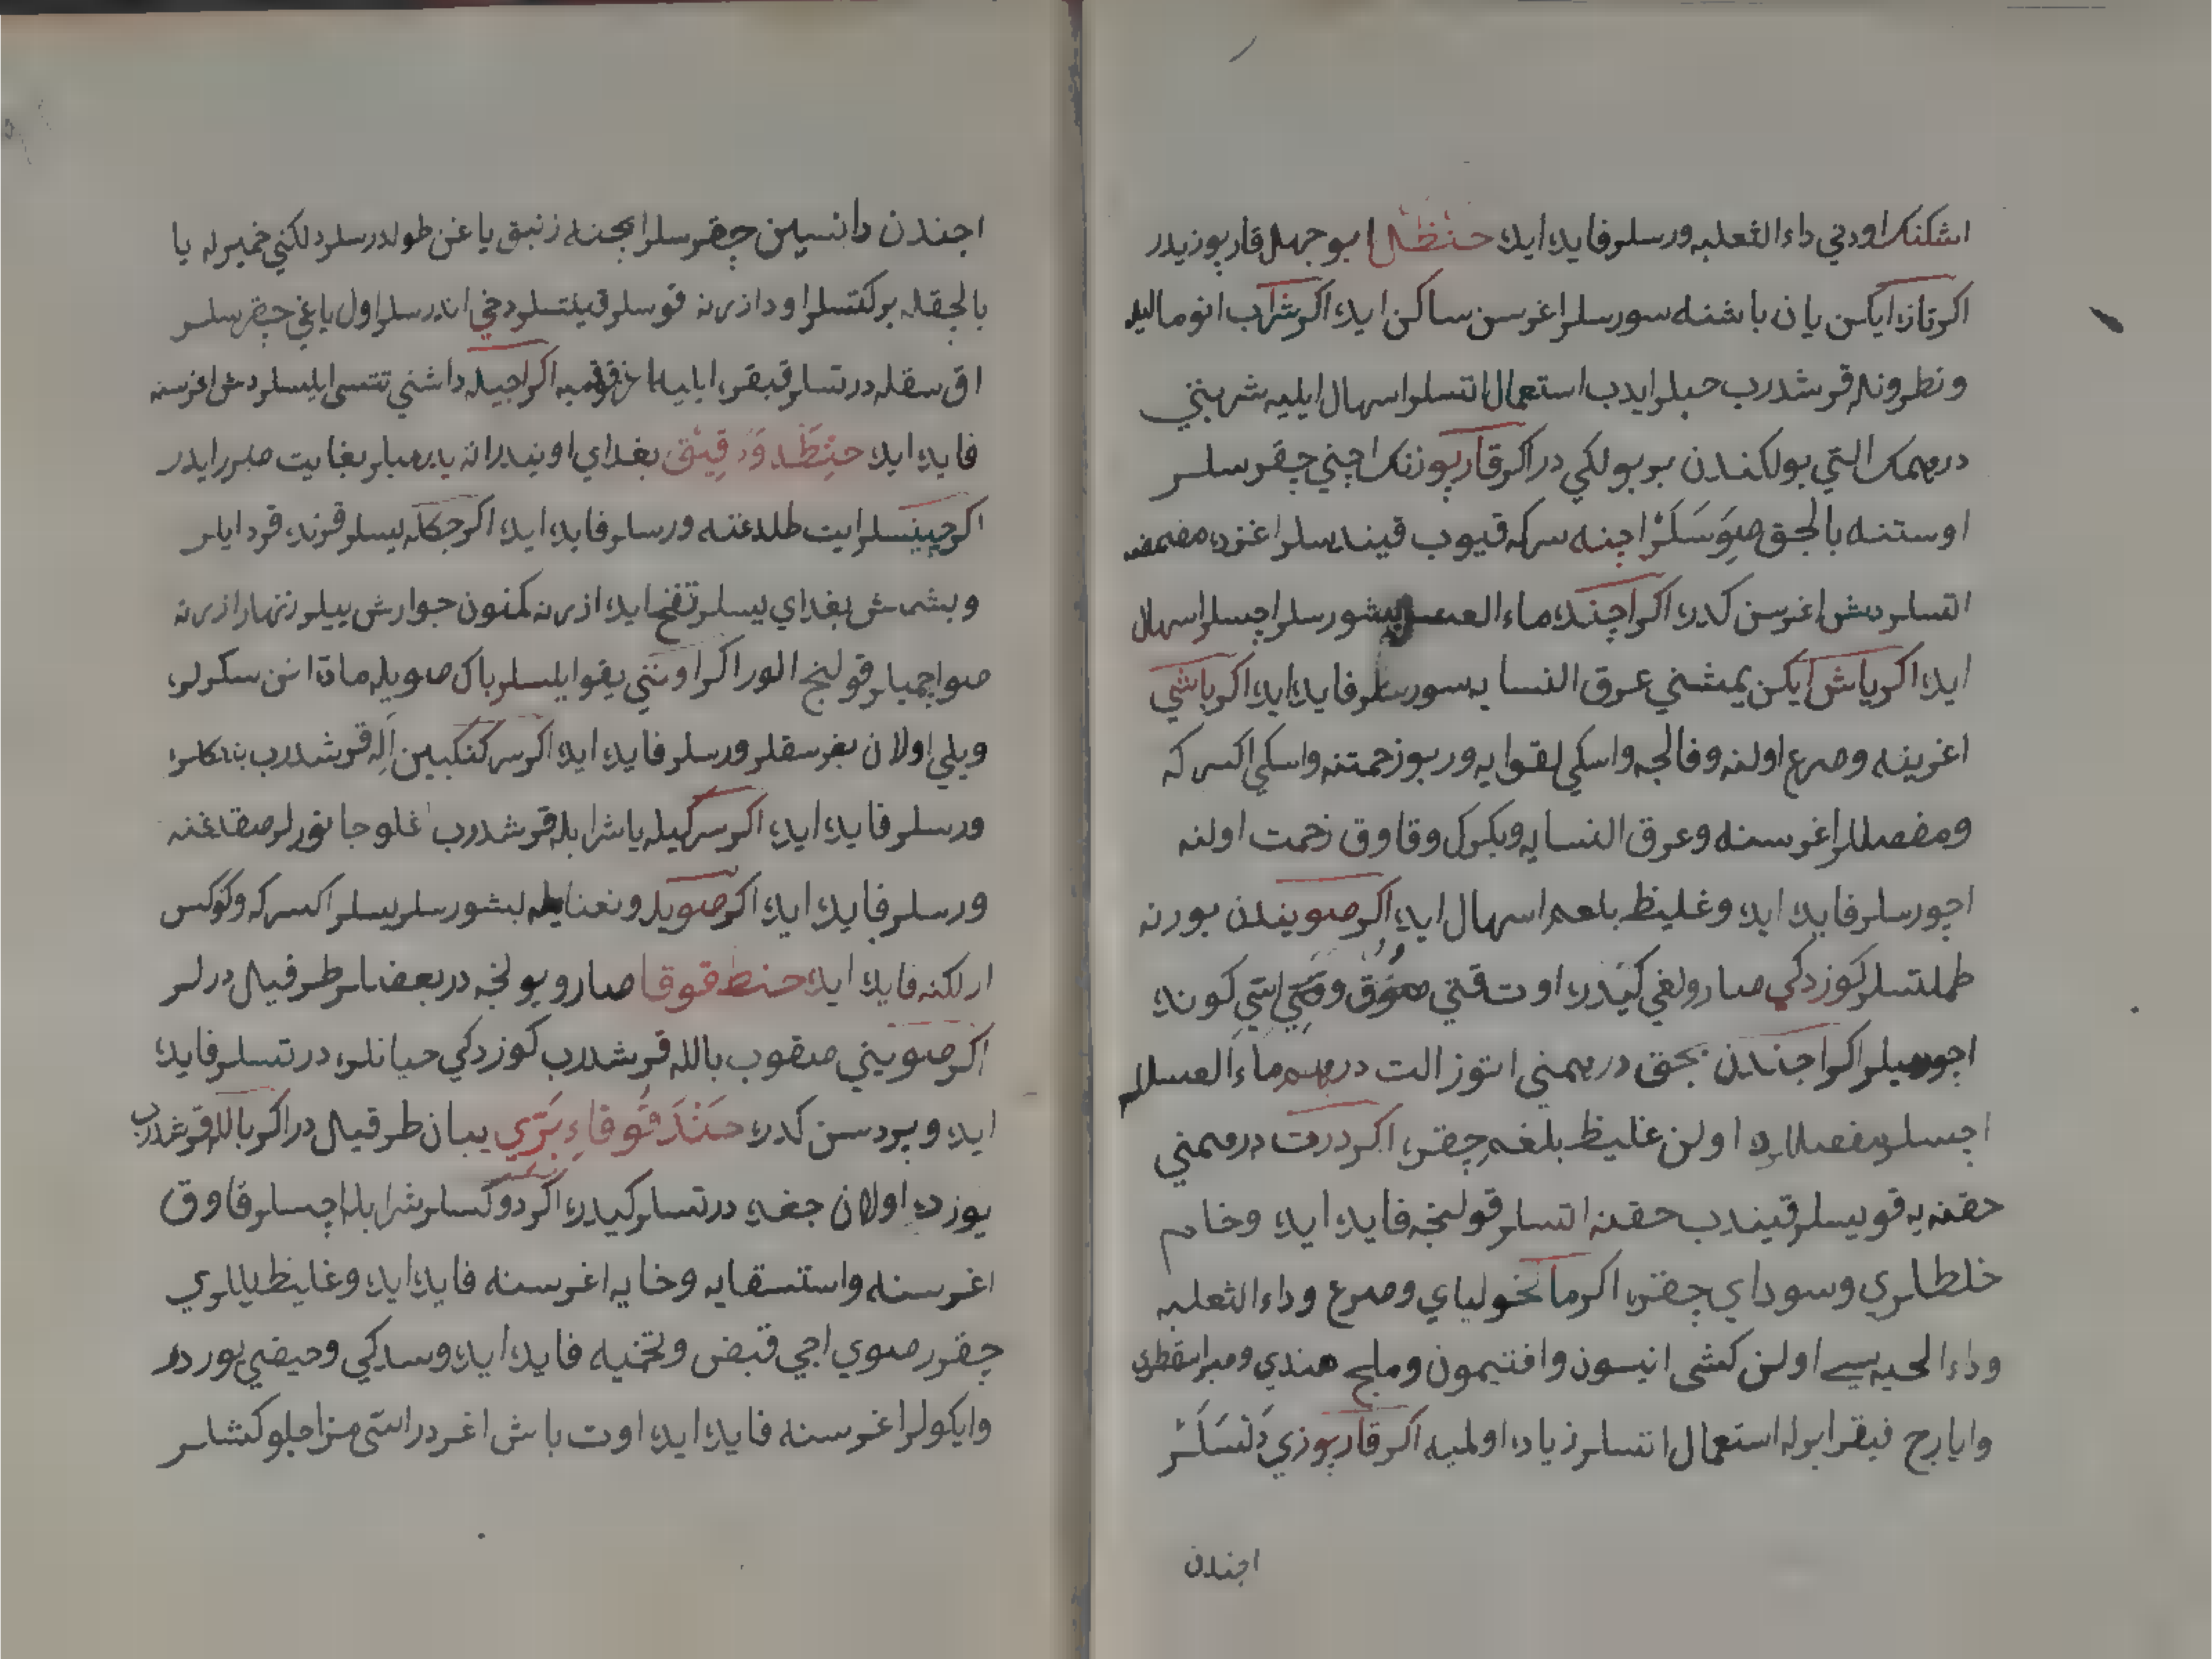 اشكنك اودني داء الثعلبه ورسلر فايده ايده حنظل ابو جهل قاربوزيدر
اكر تازه ايكن يان باشنه سورسلر اغرسن ساكن ايده اكر شراب انومالي
ونطرونله قرشدرب حبلر ايدب استعمال اتسلر اسهال ايليه شربتي
درهمك التي بولكندن بر بولكي در اكر قاربوزنك اچني چقرسلر
اوستنه بالجق صوسلر اچنه سركه قيوب قيندسلر اغزده مضمضه
اتسلر دش اغرسن كدره اكر اچنده ماء العسل بشورسلر اچسلر اسهال
ايده اكر ياش ايكن يمشني عرق النسا يه سورسلر فايده ايده اكر باشي
اغرينه وصرع اولنه وفالجه واسكي لقوايه وربو زحمتنه واسكي اكسركه
ومفصللر اغرسنه وعرق النسايه وبكرك وقاوق زحمت اولنه
اچورسلر فايده ايده وغليظ بلغم اسهال ايده اكر صويندن بورنه
طملتسلر كوزدكي صارولغي كيدره اوت قتي صوق وقتي اسي كونده
اچورميلر اكر اچندن بچق درهمني اتوز الت درهم ماء العسلله
اچسلر مفصللرده اولن غليظ بلغمي چقره اكر درت درهمني
حقنه يه قويسلر قيندب حقنه اتسلر قولنجه فايده ايده وخام
خلطلري وسوداي چقره اكر مالخولياي وصرع وداء الثعلبه
وداء الحيه سي اولن كشى انيسون وافتيمون وملح هندي وصبر اسقطري
وايارج فيقرا بوله استعمال اتسلر زياده اولميه اكر قاربوزي دلسلر
اچندن
اچندن دانسين چقرسلر اچنه زنبق ياغن طولدرسلر دلكني خميرله يا
بالجقله بركتسلر اود ازرنه قوسلر قينتسلر دخي اندرسلر اول ياغي چقرسلر
اق سقله درتسلر قبقره ايليه اغرقوميه اكر اجيله داشني تتسى ايلسلر دش اغرسنه
فايده ايده حنطه ورقيق بغداي اونيدر انه يرميلر بغايت ضرر ايدر
اكر چينسلر ايت طلدغنه ورسلر فايده ايده اكر چكله يسلر قرنده قرد ايلر
وبشمش بغداي يسلر تفخ ايده ازرنه كمنون جوارش ييلر زنهار ازرنه
صو اچميلر قولنج الور اكر اونني يقو ايلسلر باك صويله ماده انن سكرلره
ويلي اولان يغرسقلر ورسلر فايده ايده اكر سركنكبين اله قرشدرب بنكلره
ورسلر فايده ايده اكر سركهيله يا شرابله قرشدرب اغلو جانورلر صقدغنه
ورسلر فايده ايده اكر صويله ونعنايله بشورسلر يسلر اكسركه وكوكس
ارلكنه فايده ايده حنط قوقا صارو يونجه در بعضلر طرفيل درلر
اكر صويني صقوب بالله قرشدرب كوزدكي حيانلره درتسلر فايده
ايده وپردسن كدره حندقوقاء بري يبان طرفيل در اكر بالله قرشدرب
يوزده اولان جغده درتسلر كيدره اكر دوكسلر شرابله اچسلر قاوق
اغرسنه واستسقايه وخايه اغرسنه فايده ايده وغليظ يللري
چقرر صوي اجي قبض وتخميه فايده ايده وسدكي وحيضي يوردر
وايكولر اغرسنه فايده ايده اوت باش اغردر اسى مزاجلو كشلر